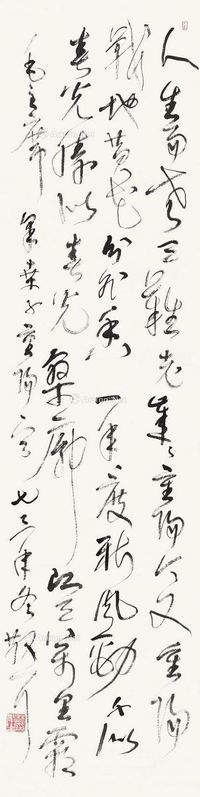 人生易老天難老歲歲重陽今又重陽
戰地黃花分外香一年一度秋風勁不似
春光勝似春光寥廓江天萬里霜
毛主席采桑子重陽 年冬散耳